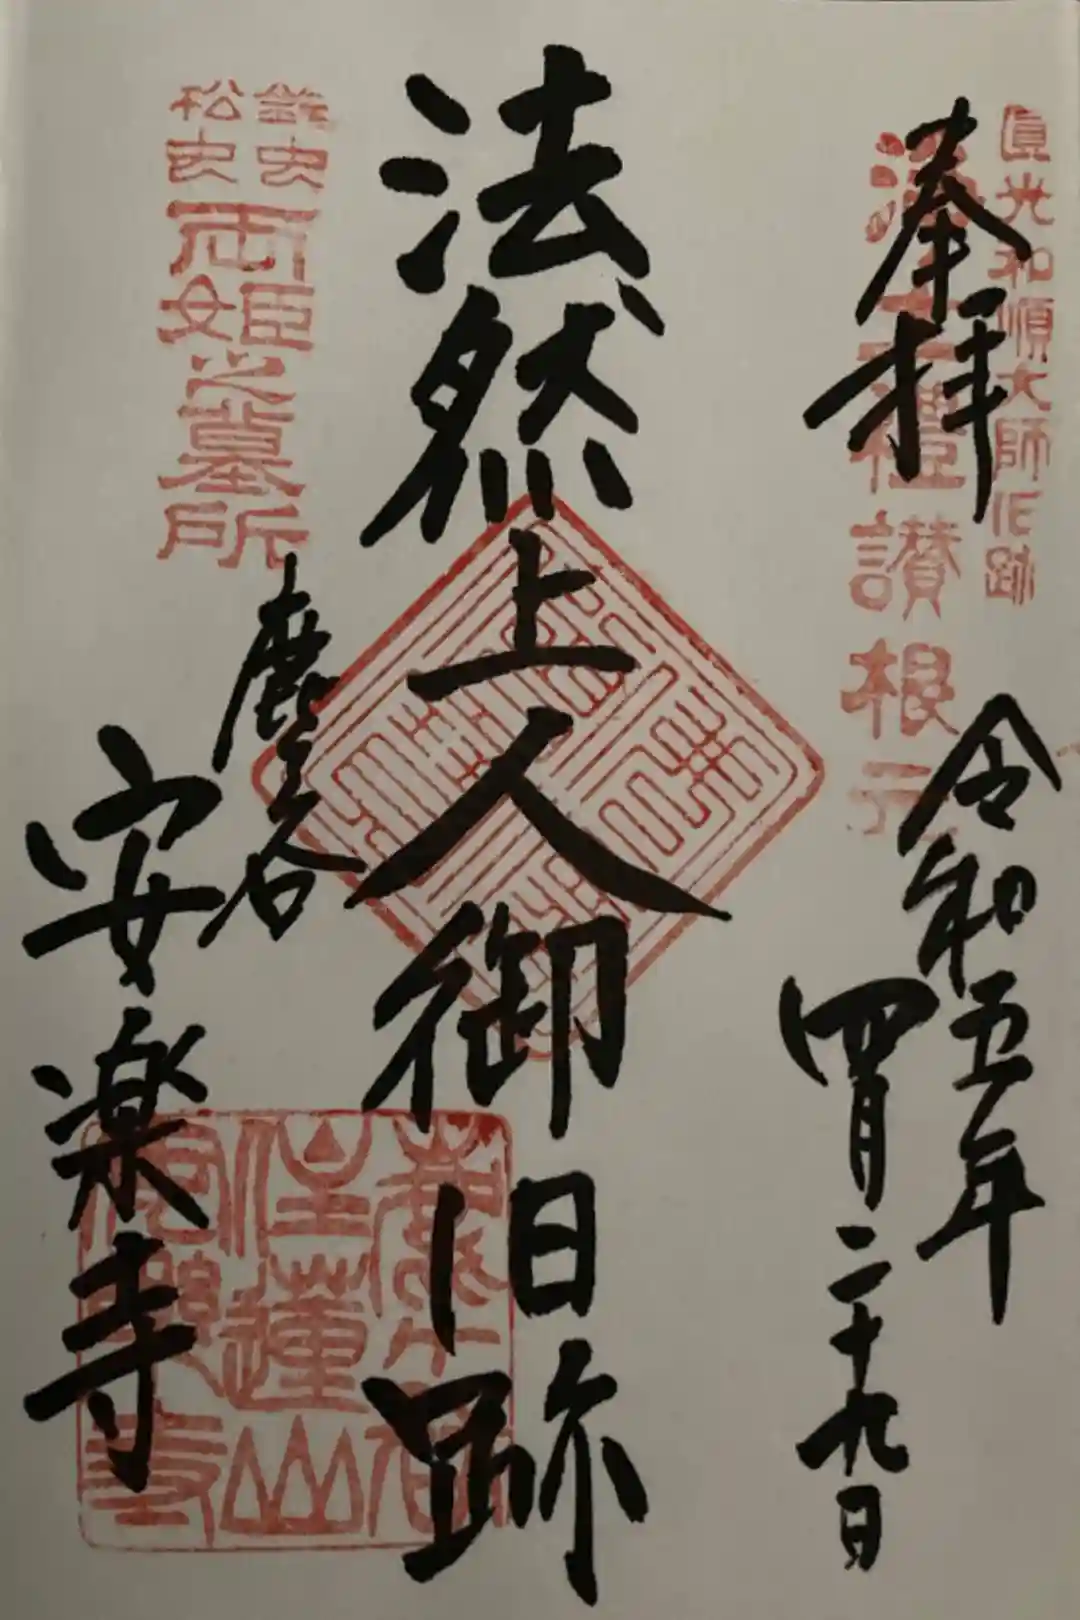 圓光和順大師旧跡
浄土禮讃根元
奉拝
令和五年
四月二十九日
法然上人御旧跡
鈴虫
松虫
両姫之墓所
鹿ヶ谷
安楽寺
住蓮山